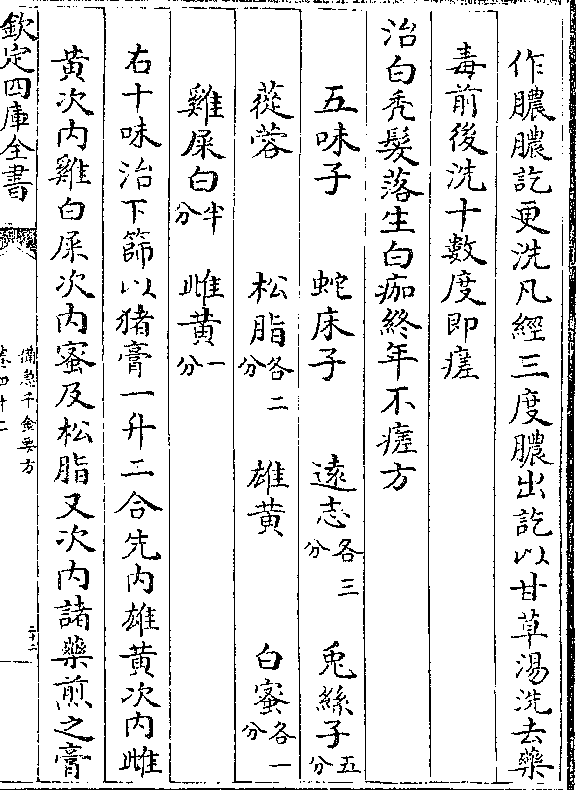 作膿膿訖更洗凡經三度膿出訖以甘草湯洗去藥
毒前後洗十數度即瘥
治白禿髮落生白痂終年不瘥方
五味子 蛇床子 遠志各三分 兎絲子五分
蓯蓉 松脂各二分 雄黄 白蜜各一分
雞屎白半分 雌黄一分
右十味治下篩以猪膏一升二合先内雄黄次内雌
黄次内雞白屎次内蜜及松脂又次内諸藥煎之膏
欽定四庫全書
備急千金要方